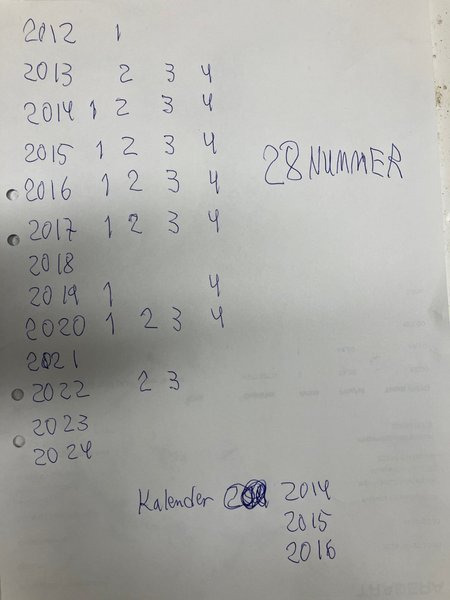 2012 1
2013 2 3 4
2014 1 2 3 4
2015 1 2 3 4
28 NUMMER
2016 1 2 3 4
2017 1 2 3 4
2018
2019 1 4
2020 1 2 3 4
2021
2022 2 3
2023
2024
Kalender 2014
2015
2016